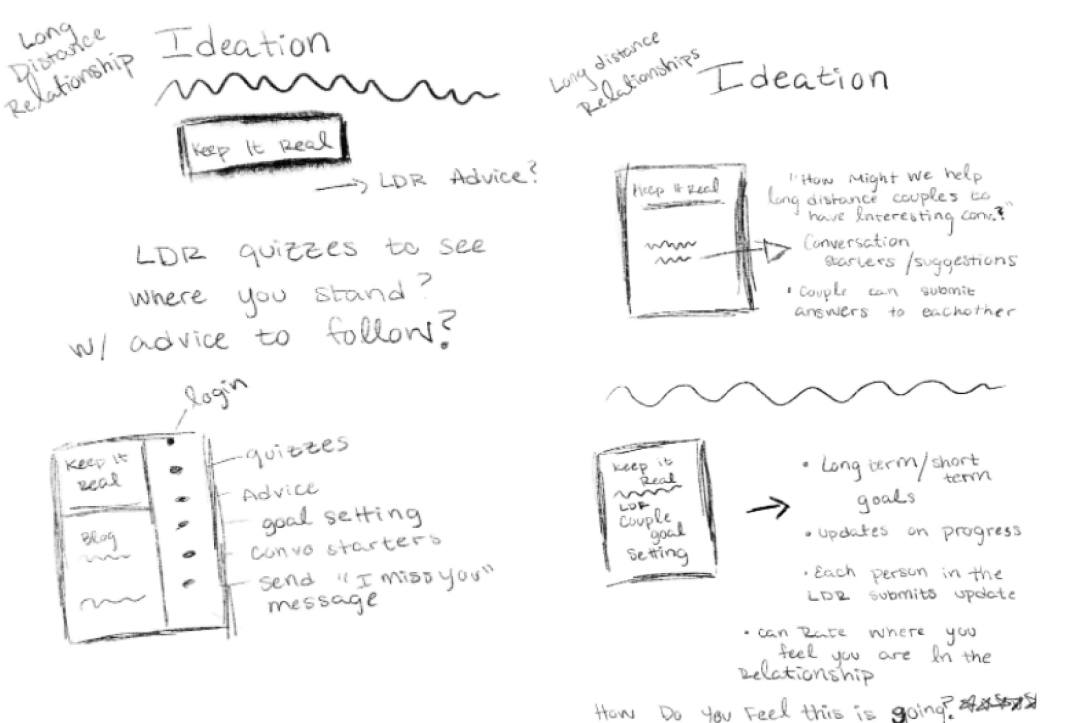 Long
Distance
Relationship
Ideation
Keep It Real
LDR Advice?
LDR quizzes to see
where you stand?
w/ advice to follow?
login
Keep It
Real
Blog
quizzes
Advice
goal setting
convo starters
send "I miss you"
message
Long distance
Relationships
Ideation
Keep it Real
"How Might we help
long distance couples to
have Interesting conv.?"
Conversation
starters/suggestions
• Couple can submit
answers to eachother
Keep it
Real
LDR
Couple
goal
Setting
• Long term/short
term
goals
• updates on progress
• Each person in the
LDR submits update
• can Rate where you
feel you are In the
Relationship
How Do You Feel this is going?